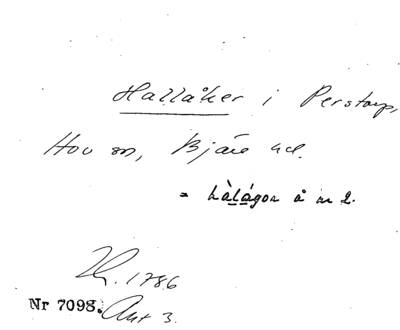 Hallåker i Perstorp,
Hov sn, Bjäre hd.
= hàlágor å nr 2.
1786
Nr 7098. Akt 3.